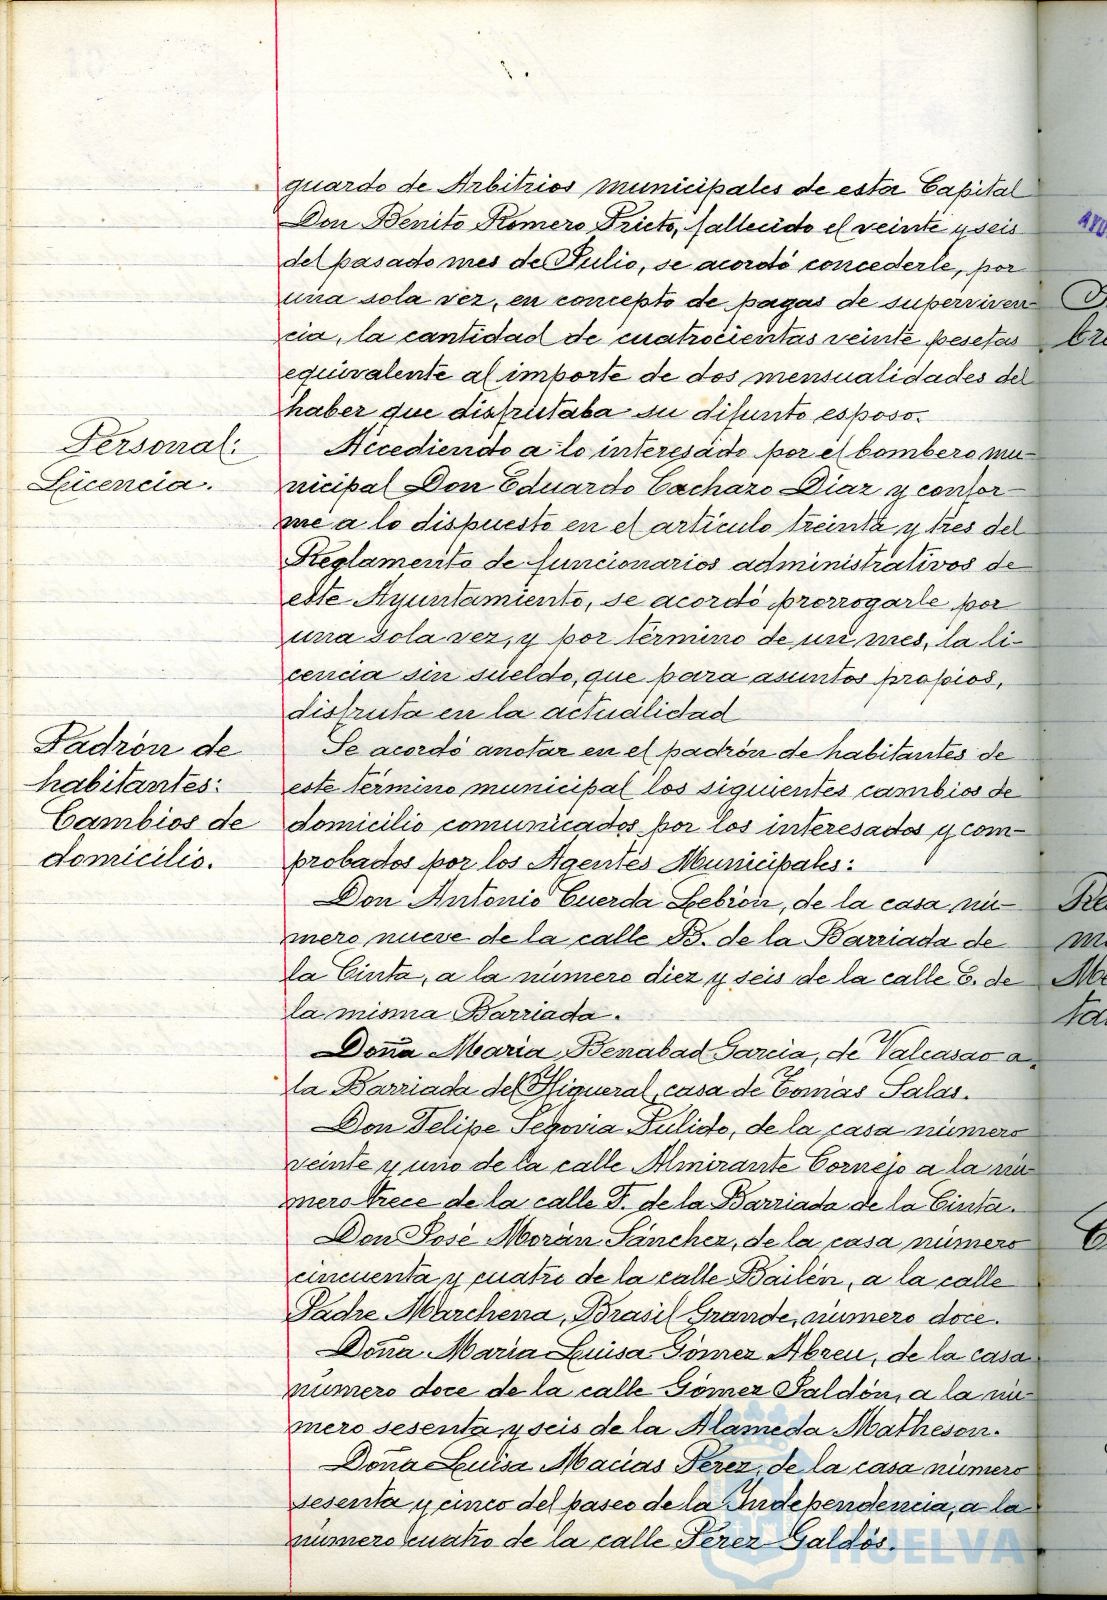 guardo de Arbitrios municipales de esta Capital
Don Benito Romero Prieto, fallecido el veinte y seis
del pasado mes de Julio, se acordó concederle, por
una sola vez, en concepto de pagas de superviven-
cia, la cantidad de cuatrocientas veinte pesetas
equivalente al importe de dos mensualidades del
haber que disfrutaba su difunto esposo.
Personal:
Licencia.
Accediendo a lo interesado por el bombero mu-
nicipal Don Eduardo Cachazo Diaz y confor-
me a lo dispuesto en el artículo treinta y tres del
Reglamento de funcionarios administrativos de
este Ayuntamiento, se acordó prorrogarle por
una sola vez, y por término de un mes, la li-
cencia sin sueldo, que para asuntos propios,
disfruta en la actualidad
Padrón de
habitantes:
Cambios de
domicilio.
Se acordó anotar en el padrón de habitantes de
este término municipal los siguientes cambios de
domicilio comunicados por los interesados y com-
probados por los Agentes Municipales:
Don Antonio Cuerda Lebrón, de la casa nú-
mero nueve de la calle B. de la Barriada de
la Cinta, a la número diez y seis de la calle E. de
la misma Barriada.
Doña Maria Benabad Garcia, de Valcasao a
la Barriada del Higueral, casa de Tomás Salas.
Don Felipe Segovia Pulido, de la casa número
veinte y uno de la calle Almirante Cornejo a la nú-
mero trece de la calle F. de la Barriada de la Cinta.
Don José Morán Sánchez, de la casa número
cincuenta y cuatro de la calle Bailén, a la calle
Padre Marchena, Brasil Grande, número doce.
Doña Maria Luisa Gómez Abreu, de la casa
número doce de la calle Gómez Jaldón, a la nú-
mero sesenta y seis de la Alameda Matheson.
Doña Luisa Macias Pérez, de la casa número
sesenta y cinco del paseo de la Independencia, a la
número cuatro de la calle Pérez Galdós.
HUELVA